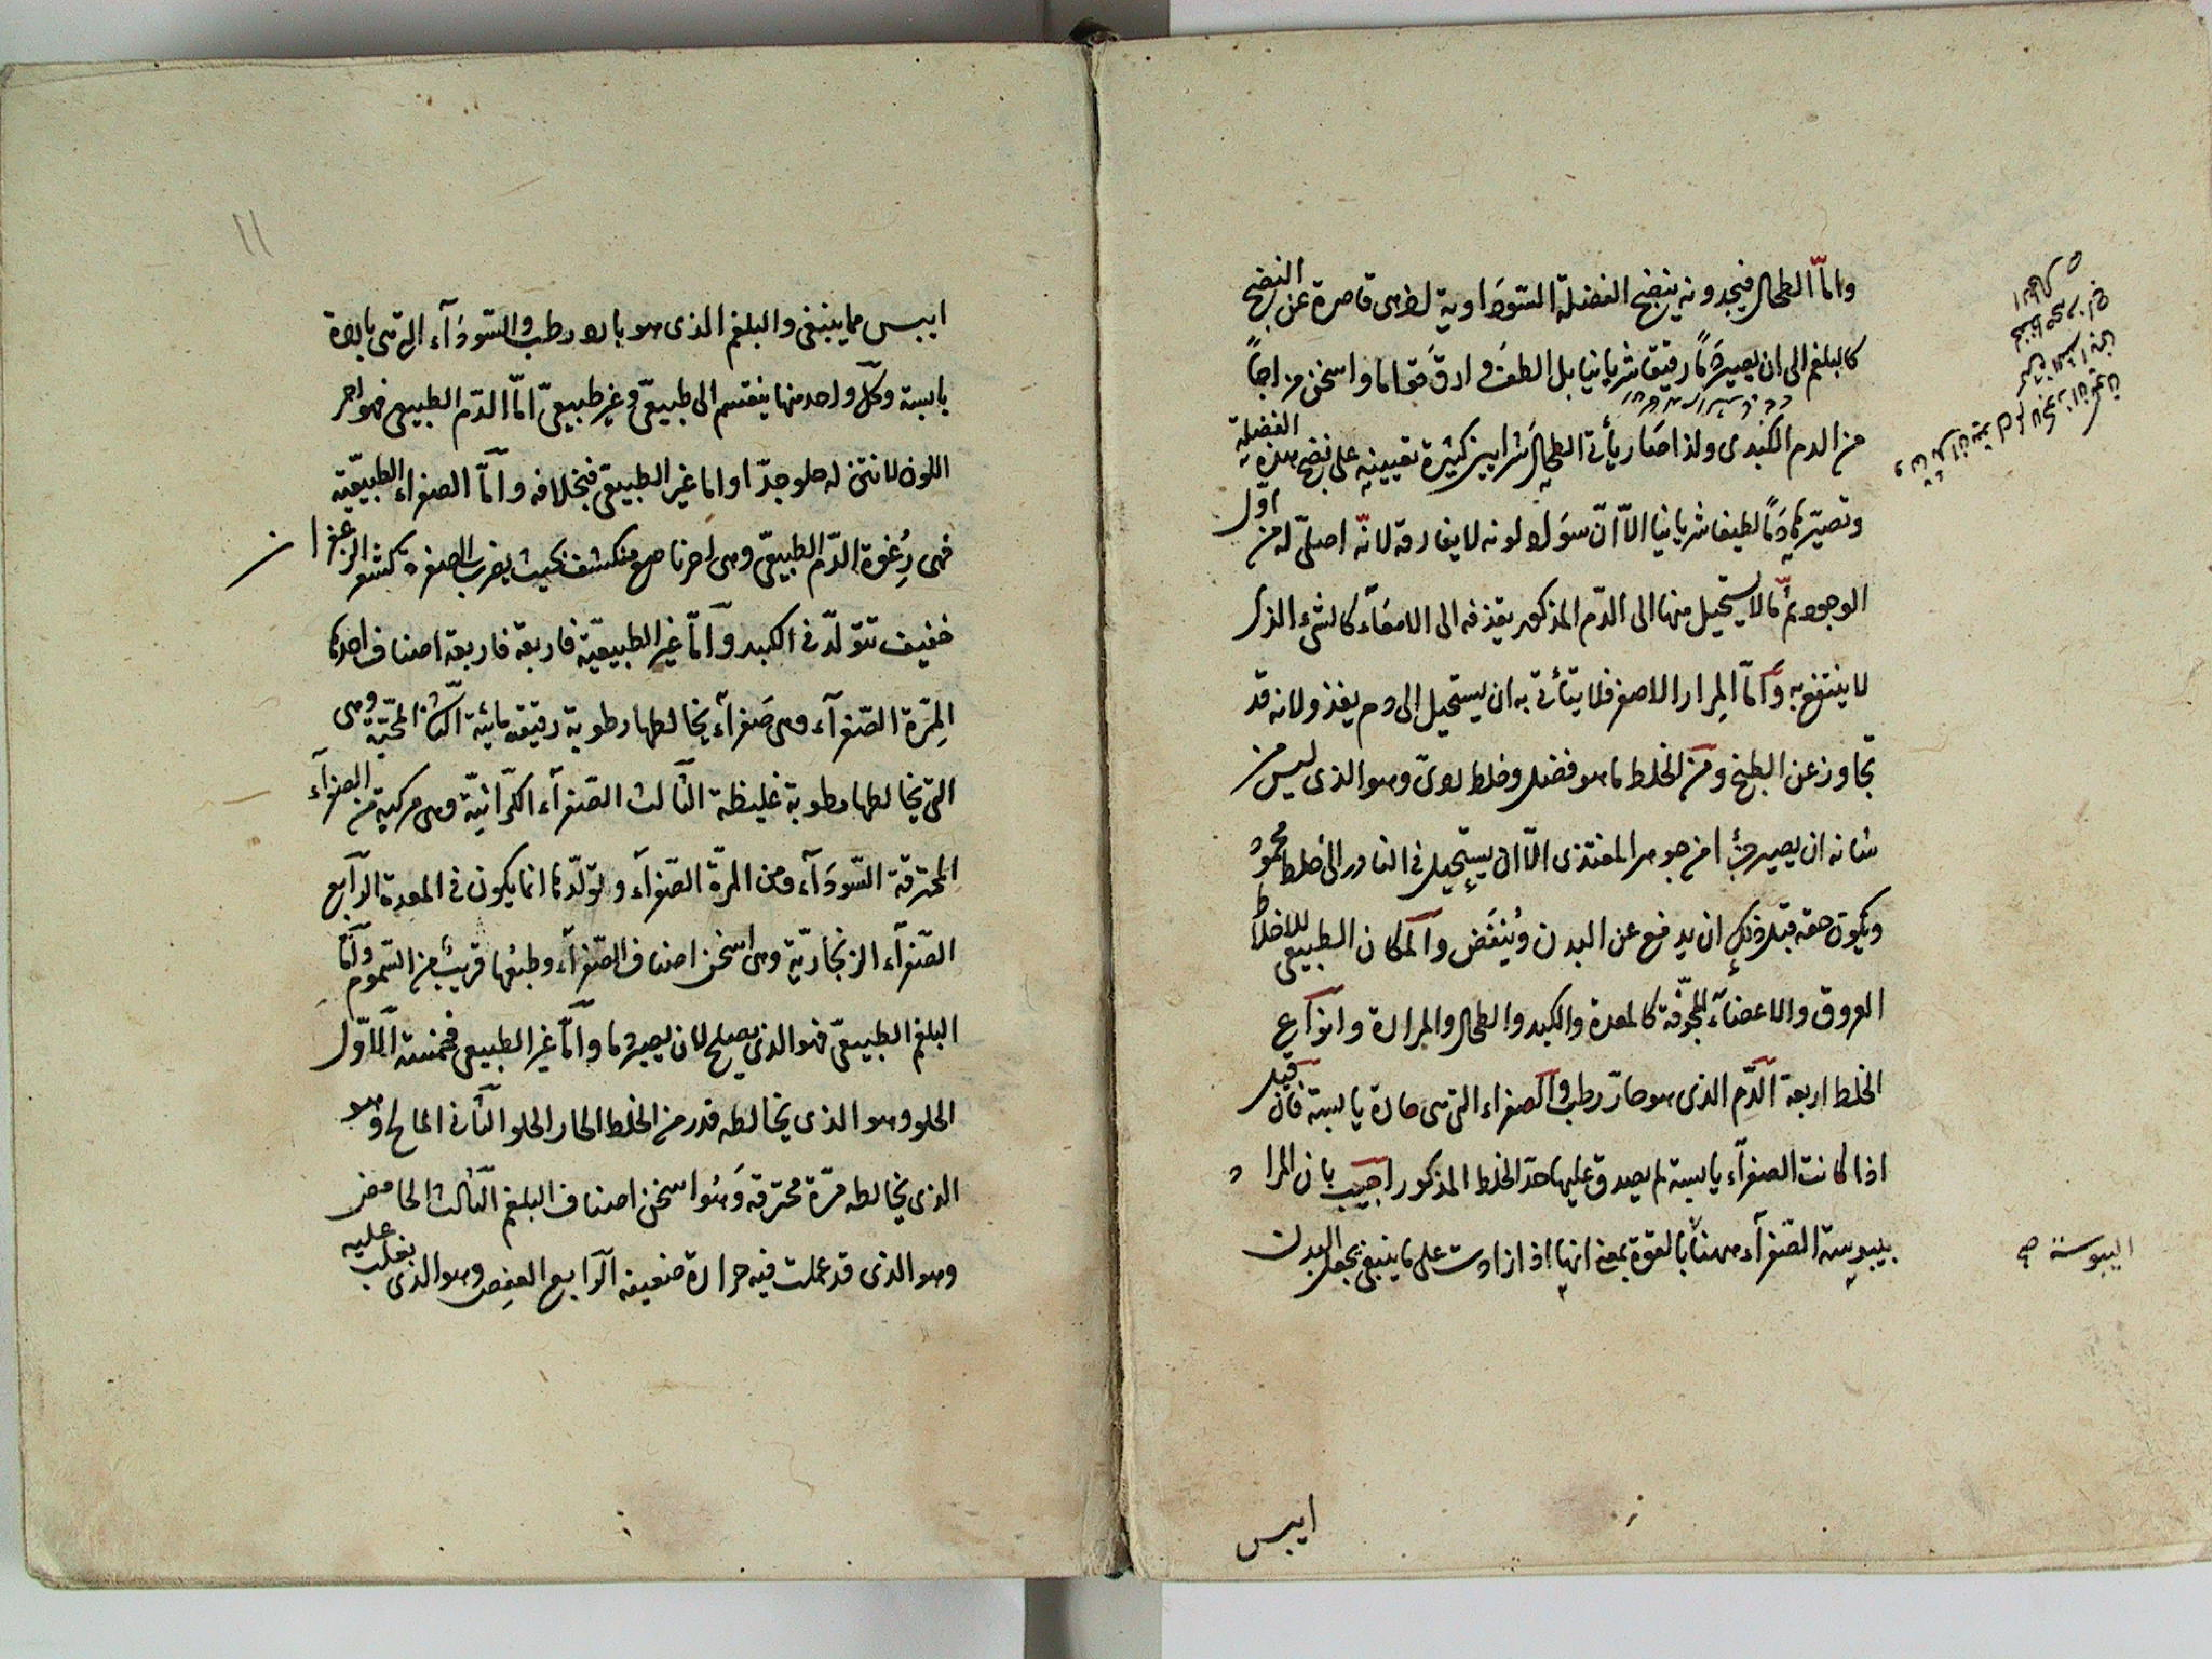 وامّا الطحال فيجد وبه ينضج الفضلة السّوداوية اذ هى قاصرة عن النضج
كالبلغم الى ان يصير دمًا رقيقا شريانيا بل الطف وادق قواما واسخن مزاجًا
من الدم الكبدى ولذا صار يأتى الطحال شرايين كثيرة تعينه على نضج هذه الفضلة
وتصيّرها دمًا لطيفا شريانيا الّا انّ سواد لونه لا يفارقه لانّه اصلىّ له من اوّل
الوجود ثمّ ما لا يستحيل منها الى الدّم المذكور يقذفه الى الامعآء كالشىء الذى
لا ينتفع به وامّا المِرار الاصفر فلا يتأتى به ان يستحيل الى دم يغذو لانه قد
تجاوز عن الطبخ ومن الخلط ما هو فضل وخلط ردىّ وهو الذى ليس من
شانه ان يصير جزءا من جوهر المغتذى الّا ان يستحيل فى النادر الى خلط محمود
ويكون حقه قبل ذلك ان يدفع عن البدن ويُنفَض والمكان الطبيعى للاخلاط
العروق والاعضآء المجوّفة كالمعدة والكبد والطحال والمرارة وانواع
الخلط اربعة الدّم الذى هو حارّ رطب والصفراء التى هى حارة يابسة فان قيل
اذا كانت الصفرآء يابسة لم يصدق عليها حدّ الخلط المذكور اجيب بان المراد
بيبوسة الصّفرآء ههنا بالقوة بمعنى انها اذا زادت على ما ينبغى يجعل البدن
اليبوسة صح
ايبس
١١
ايبس مما ينبغى والبلغم الذى هو بارد رطب والسّودآء التى هى باردة
يابسة وكلّ واحد منها ينقسم الى طبيعىّ وغير طبيعىّ امّا الدّم الطبيعى فهو احمر
اللون لا نتن له حلو جدّا واما غير الطبيعى فبخلافه وامّا الصفراء الطبيعيّة
فهى رُغوة الدّم الطبيعىّ وهى احمر ناصع منكشف بحيث يضرب الصفرة كشعر الزعفران
خفيف تتولّد فى الكبد وامّا غير الطبيعيّة فاربعة فاربعة اصناف احدها
المِرّة الصّفرآء وهى صفرآء يخالطها رطوبة رقيقه مائية الثانى المحيّة وهى
التى يخالطها رطوبة غليظة الثالث الصّفرآء الكرّاثيّة وهى مركبة من الصفرآء
المحترقة السّودآء ومن المرّة الصّفرآء وتولّدها انما يكون فى المعدة الرّابع
الصّفرآء الزنجاريّة وهى اسخن اصناف الصّفرآء وطبعها قريب من السّموم وامّا
البلغم الطبيعىّ فهو الذى يصلح لان يصير دما وامّا غير الطبيعى فخمسة الاوّل
الحلو وهو الذى يخالطه قدر من الخلط الحار الحلو الثانى المالح وهو
الذى يخالطه مرّة محترقه وهُو اسخن اصناف البلغم الثالث الحامض
وهو الذى قد عملت فيه حرارة ضعيفه الرابع العفِص وهو الذى يغلب عليه